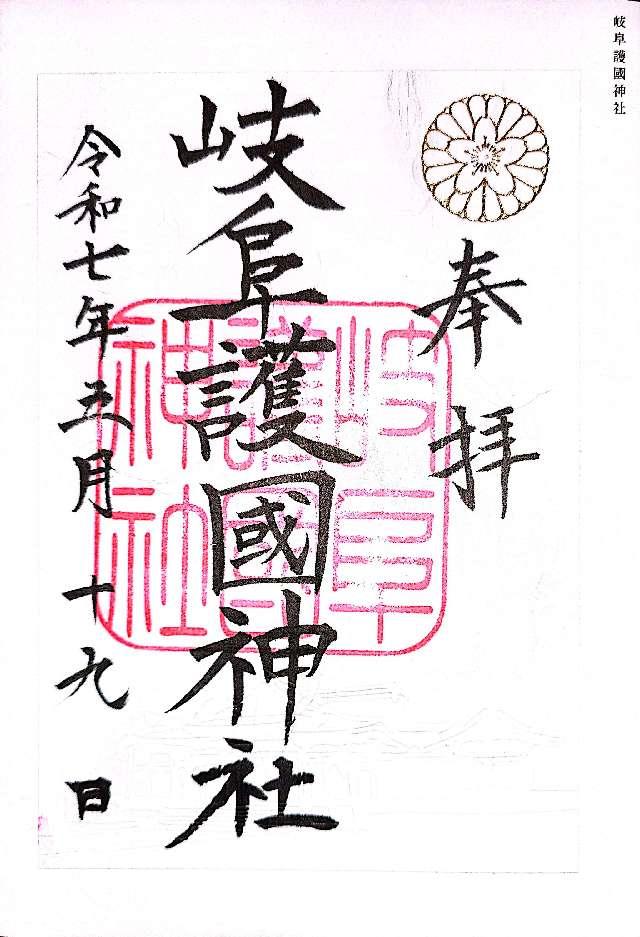 岐阜護國神社
奉拝
岐阜護國神社
岐阜護國神社
令和七年五月十九日